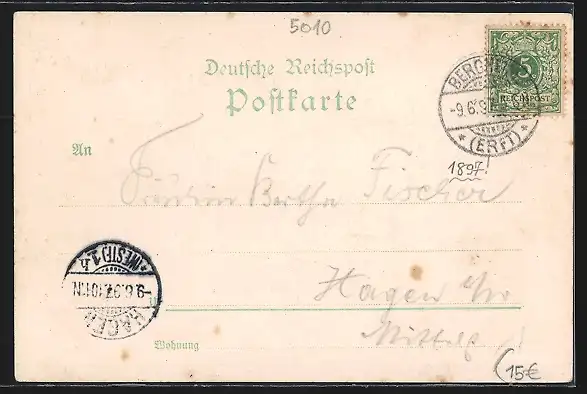 5010
Deutsche Reichspost
Postkarte
5
REICHSPOST
-9.6.97
* (ERFT) *
1897!
An
Fräulein Bertha Fischer
*(WESTF) 1 h
-9.6.97.10-11N.
HAGEN
Hagen i/W
Wohnung
15€